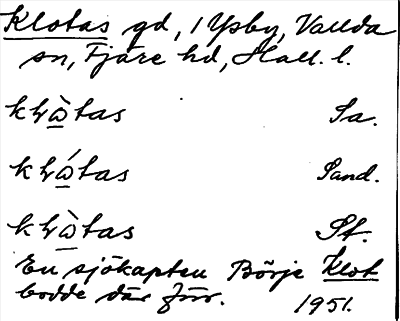 Klotas gd, 1 Ysby, Vallda
sn, Fjäre hd, Hall. l.
kɫὼ̲tas Sa.
kɫώ̲tas Sand.
kɫὼ̲tas St.
En sjökapten Börje Klot
bodde där förr. 1951.